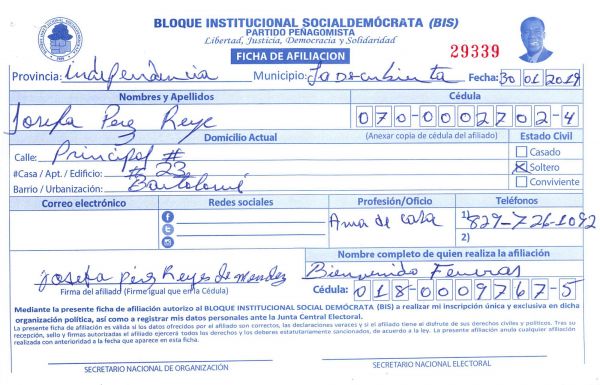 BLOQUE INSTITUCIONAL SOCIALDEMÓCRATA (BIS)
PARTIDO PEÑAGOMISTA
Libertad, Justicia, Democracia y Solidaridad
FICHA DE AFILIACION
29339
Provincia: Independencia Municipio: La Descubierta Fecha: 30 01 2019
Nombres y Apellidos
Cédula
Josefa Perez Reye
070-0002702-4
Domicilio Actual
(Anexar copia de cédula del afiliado)
Estado Civil
Calle: Principal #
#Casa / Apt. / Edificio: # 23
Barrio / Urbanización: Bartolomé
Casado
Soltero
Conviviente
Correo electrónico
Redes sociales
Profesión/Oficio
Teléfonos
Ama de casa
1) 829-726-1092
2)
Nombre completo de quien realiza la afiliación
Josefa pérez Reyes De Mendez
Bienvenido Ferreras
Firma del afiliado (Firme igual que en la Cédula)
Cédula: 018-0009767-5
Mediante la presente ficha de afiliación autorizo al BLOQUE INSTITUCIONAL SOCIAL DEMÓCRATA (BIS) a realizar mi inscripción única y exclusiva en dicha
organización política, así como a registrar mis datos personales ante la Junta Central Electoral.
La presente ficha de afiliación es válida si los datos ofrecidos por el afiliado son correctos, las declaraciones veraces y si el afiliado tiene el disfrute de sus derechos civiles y políticos. Tras su
recepción, sello y firmas autorizadas el afiliado ejercerá todos los derechos y los deberes estatutariamente sancionados, de acuerdo a la ley. La presente afiliación anula cualquier afiliación
realizada con anterioridad a la fecha que aparece en esta ficha.
SECRETARIO NACIONAL DE ORGANIZACIÓN
SECRETARIO NACIONAL ELECTORAL